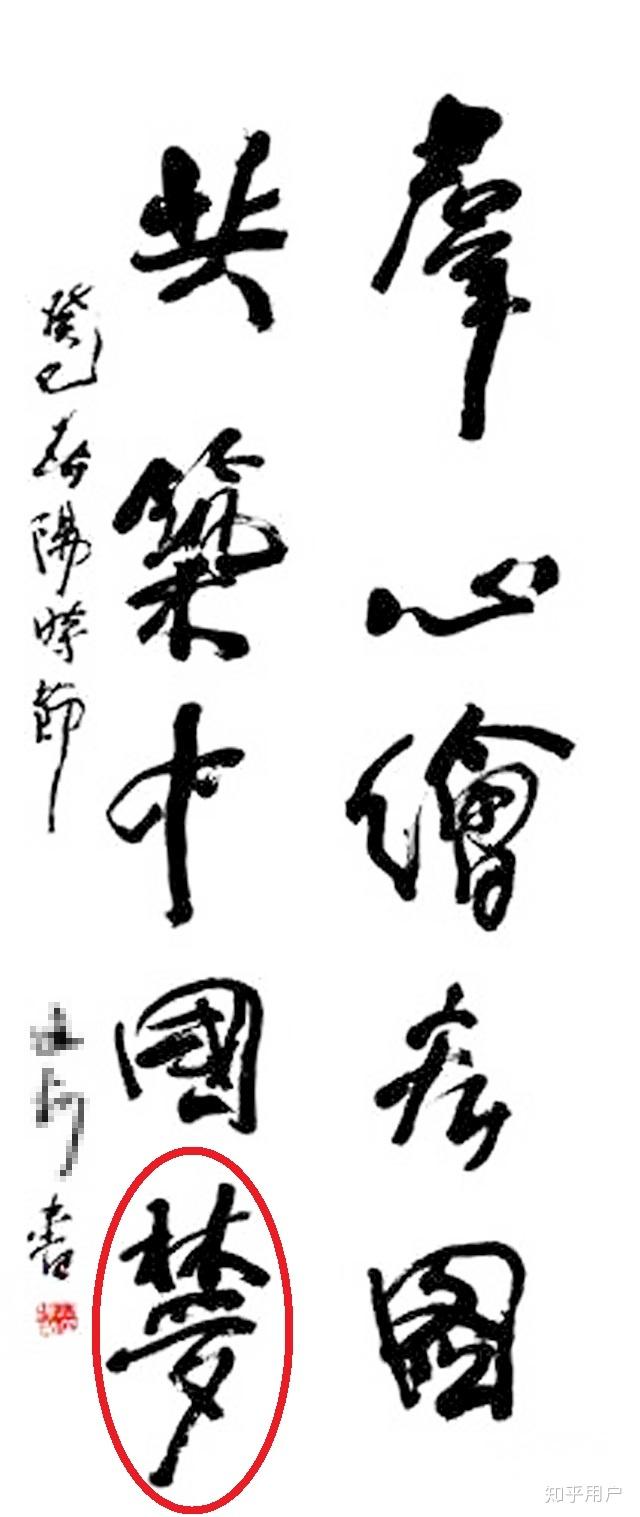 羣心繪宏圖
共築中國夢
癸巳春陽時節
書
知乎用户